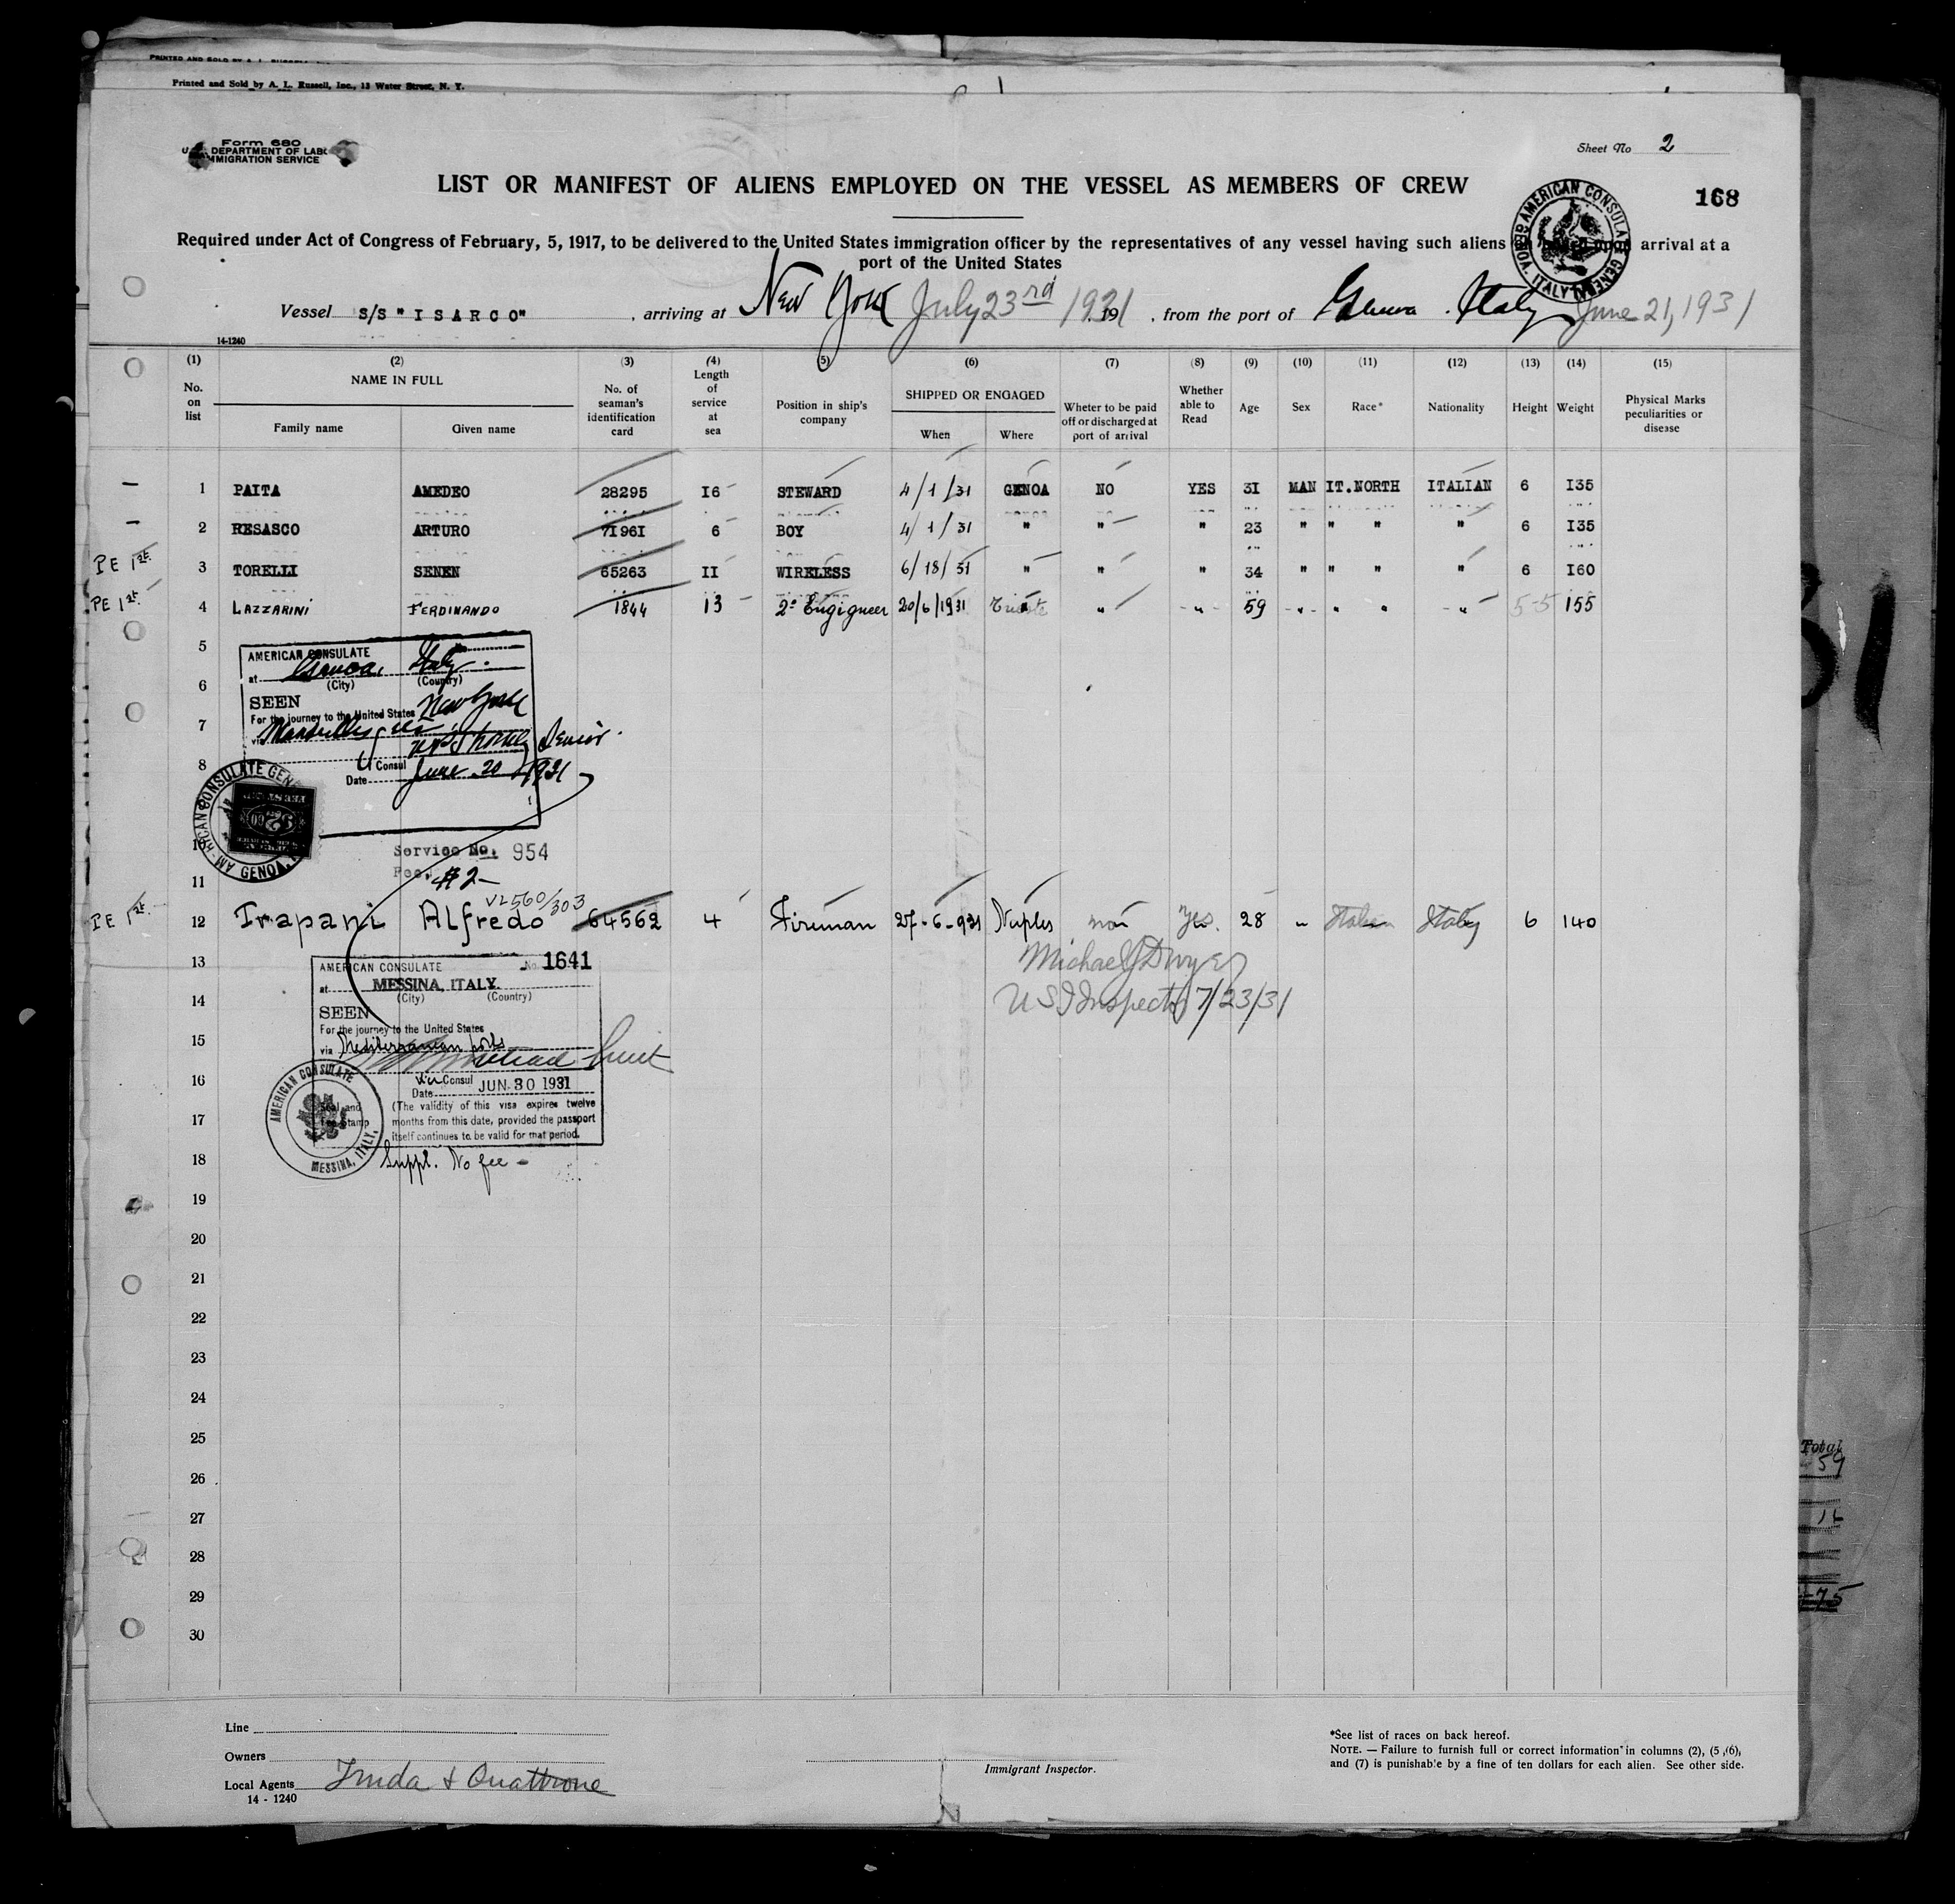 Printed and Sold by A. L. Russell, Inc., 13 Water Street, N. Y.
Form 680
DEPARTMENT OF LABO
IMMIGRATION SERVICE
Sheet No 2
LIST OR MANIFEST OF ALIENS EMPLOYED ON THE VESSEL AS MEMBERS OF CREW
168
AMERICAN CONSULATE GENERAL ITALY
Required under Act of Congress of February, 5, 1917, to be delivered to the United States immigration officer by the representatives of any vessel having such aliens arrival at a
port of the United States
Vessel S/S "ISARCO", arriving at New York July 23rd 1931, from the port of Genova Italy June 21, 1931
14-1240
(1) (2) (3) (4) (5) (6) (7) (8) (9) (10) (11) (12) (13) (14) (15)
No. on list
NAME IN FULL
Family name
Given name
No. of seaman's identification card
Length of service at sea
Position in ship's company
SHIPPED OR ENGAGED
When
Where
Wheter to be paid off or discharged at port of arrival
Whether able to Read
Age
Sex
Race*
Nationality
Height
Weight
Physical Marks peculiarities or disease
— 1 PAITA AMEDEO 28295 16 STEWARD 4/1/31 GENOA NO YES 31 MAN IT.NORTH ITALIAN 6 135
— 2 RESASCO ARTURO 71961 6 BOY 4/1/31 " " " 23 " " " " 6 135
PE 1st 3 TORELLI SENEN 65263 II WIRELESS 6/18/31 " " " 34 " " " " 6 160
PE 1st 4 LAZZARINI FERDINANDO 1844 13 2º Engigneer 20/6/1931 Trieste " " 59 " " " " 5-5 155
5
6
7
8
AMERICAN CONSULATE
at Genoa, Italy.
(City) (Country)
SEEN
For the journey to the United States New York
via Marseilles
Consul
Date June 20 1931
AMERICAN CONSULATE GENOA
10
Service No. 954
Fee, #2—
11
VL560/303
PE 1st 12 Trapani Alfredo 64562 4 Fireman 27-6-931 Naples non Yes. 28 " Italian Italy 6 140
Michael J Dwyer
U S I Inspector 7/23/31
13
14
15
16
17
18
AMERICAN CONSULATE No. 1641
at MESSINA, ITALY.
(City) (Country)
SEEN
For the journey to the United States
via Mediterranean ports
Vice Consul
Date JUN 30 1931
Seal and
Fee Stamp
(The validity of this visa expires twelve
months from this date, provided the passport
itself continues to be valid for that period.
AMERICAN CONSULATE MESSINA, ITALY.
Suppl. No fee —
19
20
21
22
23
24
25
26
27
28
29
30
Total
59
16
75
Line
Owners
Local Agents
14 - 1240
Immigrant Inspector.
*See list of races on back hereof.
NOTE. — Failure to furnish full or correct information in columns (2), (5), (6),
and (7) is punishable by a fine of ten dollars for each alien. See other side.